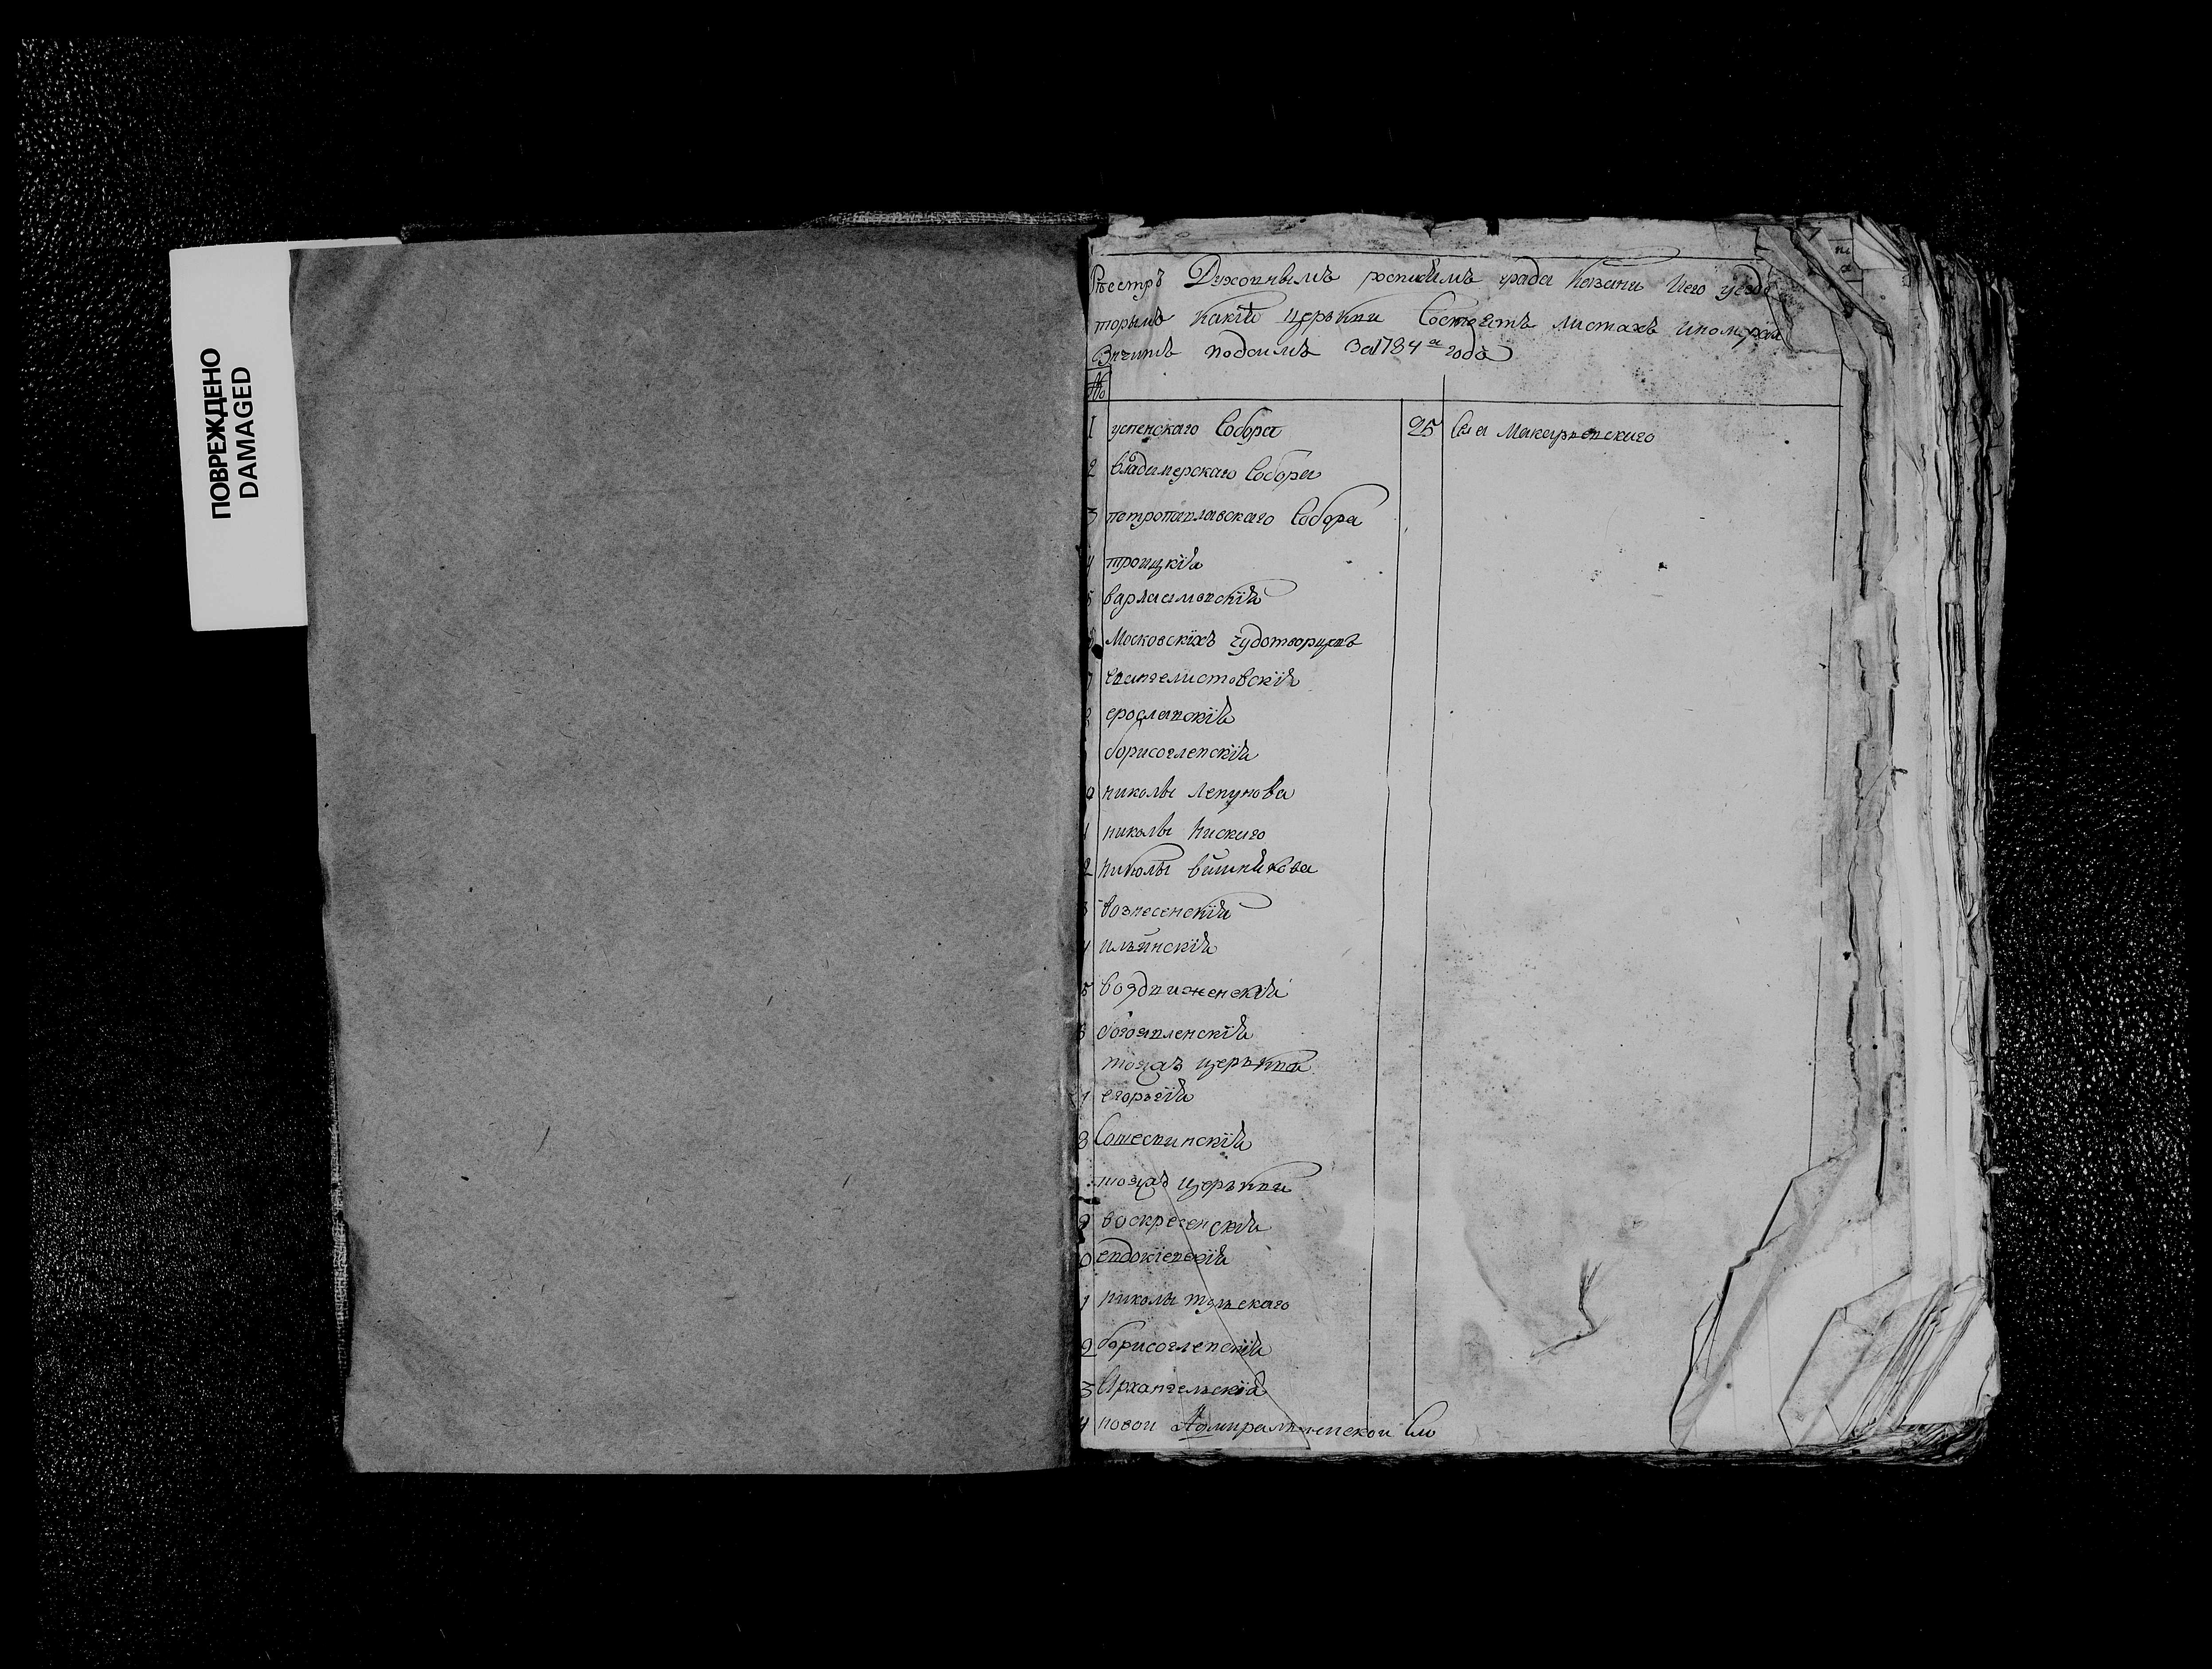 ПОВРЕЖДЕНО
DAMAGED
Реестръ Духовнымъ росписямъ града Казани иего уезда
торымъ какïя церькви Состоятъ листахъ иномерахъ
Значитъ подсимъ За1784 а года
№
1 успенскаго Собора
25 Села Макарьевскаго
2 владимерскаго Собора
3 петропавлавскаго Собора
4 троицкïя
5 варлаамовскïя
6 Московскïхъ чудотворцовъ
7 евангелистовскïя
8 ерославскïя
борисоглепскïя
0 николы ляпунова
1 николы Нискаго
2 николы вишнякова
3 вознесенскïя
4 ильинскïя
5 воздвиженскïя
6 богоявленскïя
тояжъ церькви
7 егорьгïя
8 Сошественскïя
тояжъ церькви
9 воскресенскïя
0 евдокïевскïя
1 николы тульскаго
2 борисоглепскïя
3 Архангельскïя
4 новои Адмиралтеискои Сло